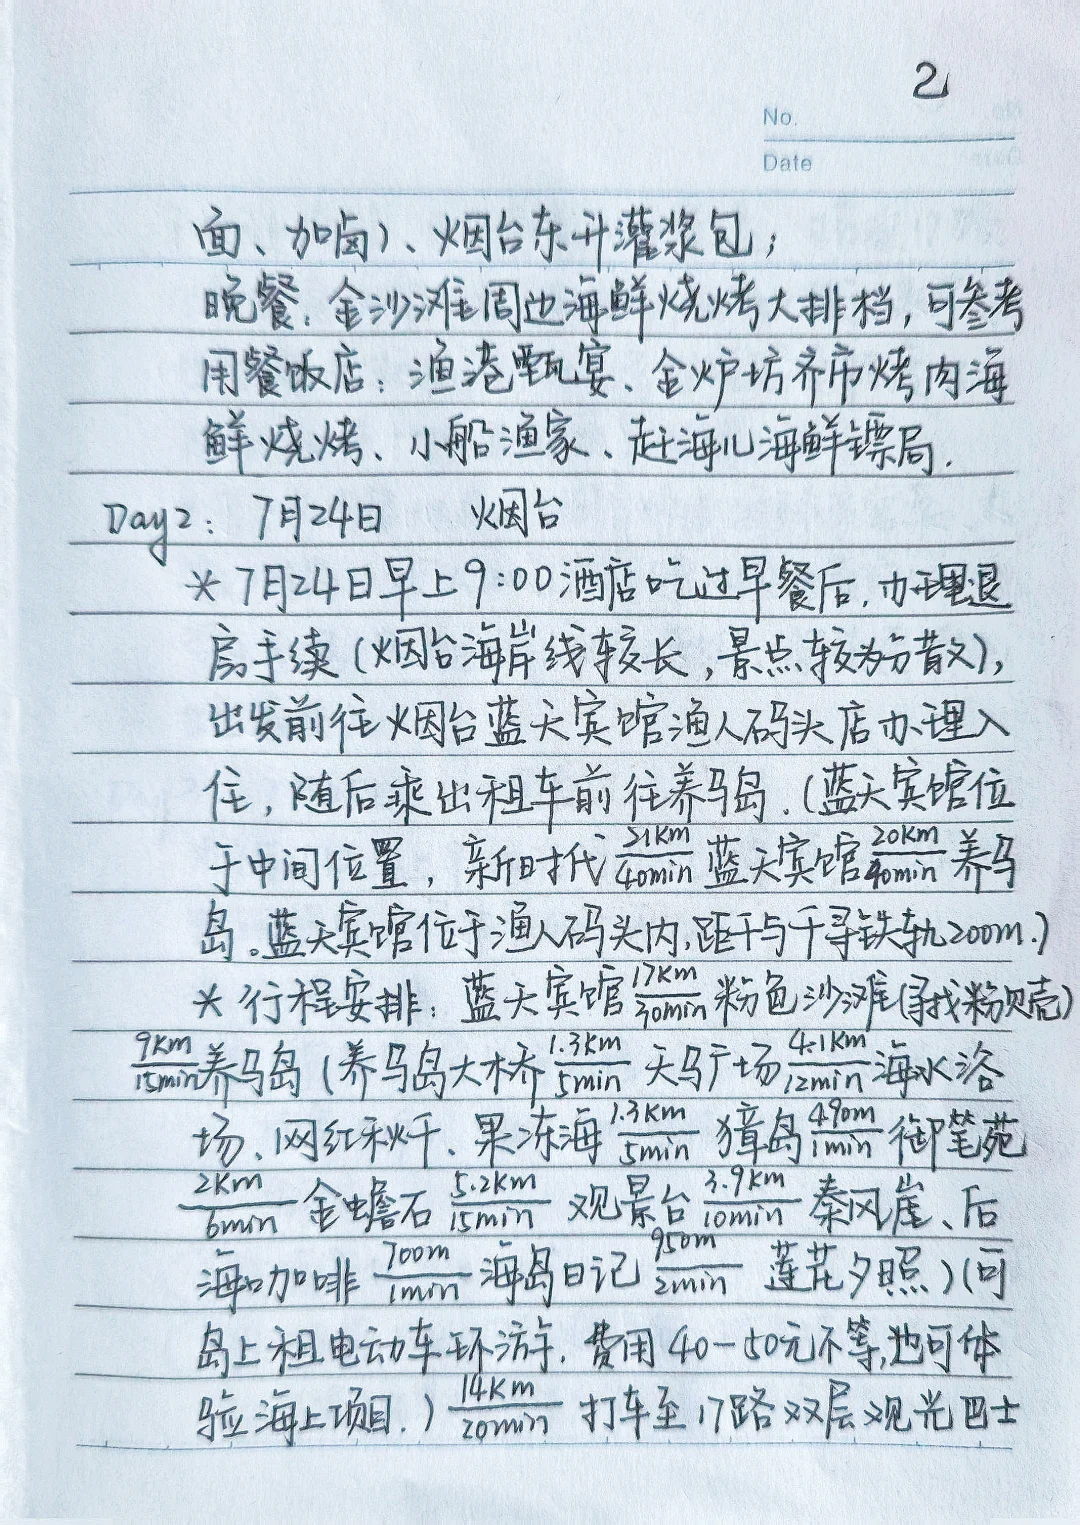 2
No.
Date
面、加卤)、烟台东升灌浆包;
晚餐:金沙滩周边海鲜烧烤大排档,可参考
用餐饭店:渔港甄宴、金炉坊齐市烤肉海
鲜烧烤、小船渔家、赶海儿海鲜镖局.
Day2: 7月24日 烟台
* 7月24日早上9:00酒店吃过早餐后,办理退
房手续(烟台海岸线较长,景点较为分散),
出发前往烟台蓝天宾馆渔人码头店办理入
住,随后乘出租车前往养马岛.(蓝天宾馆位
于中间位置,新时代 21km/40min 蓝天宾馆 20km/40min 养马
岛。蓝天宾馆位于渔人码头内,距千与千寻铁轨200m.)
* 行程安排:蓝天宾馆 17km/30min 粉色沙滩(寻找粉贝壳)
9km/15min 养马岛(养马岛大桥 1.3km/5min 天马广场 4.1km/12min 海水浴
场、网红秋千、果冻海 1.3km/5min 獐岛 490m/1min 御笔苑
2km/6min 金蟾石 5.2km/15min 观景台 3.9km/10min 秦风崖、后
海咖啡 700m/1min 海岛日记 950m/2min 莲花夕照)(可
岛上租电动车环游,费用40-50元不等,也可体
验海上项目.) 14km/20min 打车至17路双层观光巴士